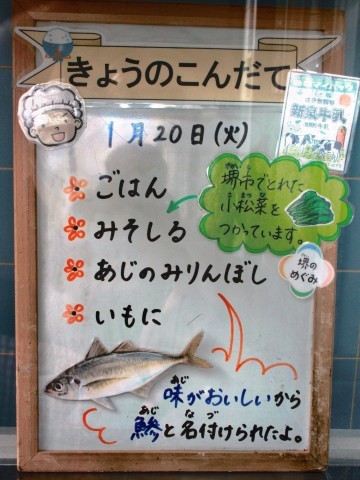 きょうのこんだて
1月20日(火)
ごはん
みそしる
あじのみりんぼし
いもに
堺市でとれた
小松菜を
つかっています。
堺の
めぐみ
味がおいしいから
鯵と名付けられたよ。
あじ
あじ
なづ